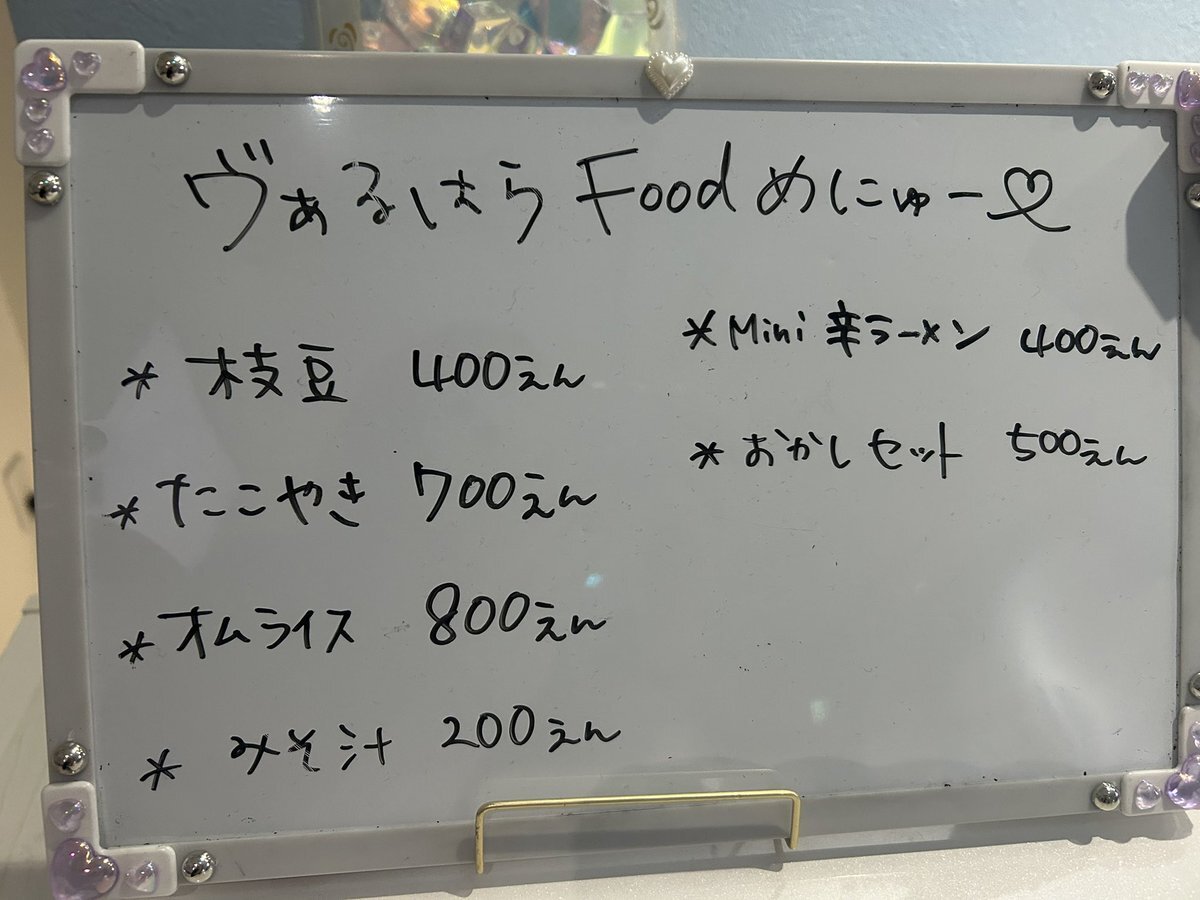 ヴぁるはら Food めにゅー♡
* 枝豆 400えん
* たこやき 700えん
* オムライス 800えん
* みそ汁 200えん
* Mini 辛ラーメン 400えん
* おかしセット 500えん